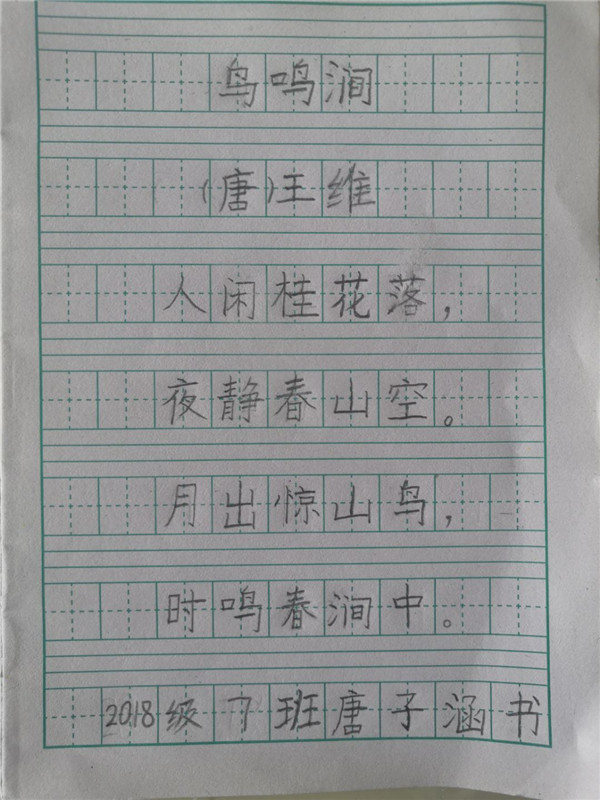 鸟鸣涧
(唐)王维
人闲桂花落，
夜静春山空。
月出惊山鸟，
时鸣春涧中。
2018级7班唐子涵书